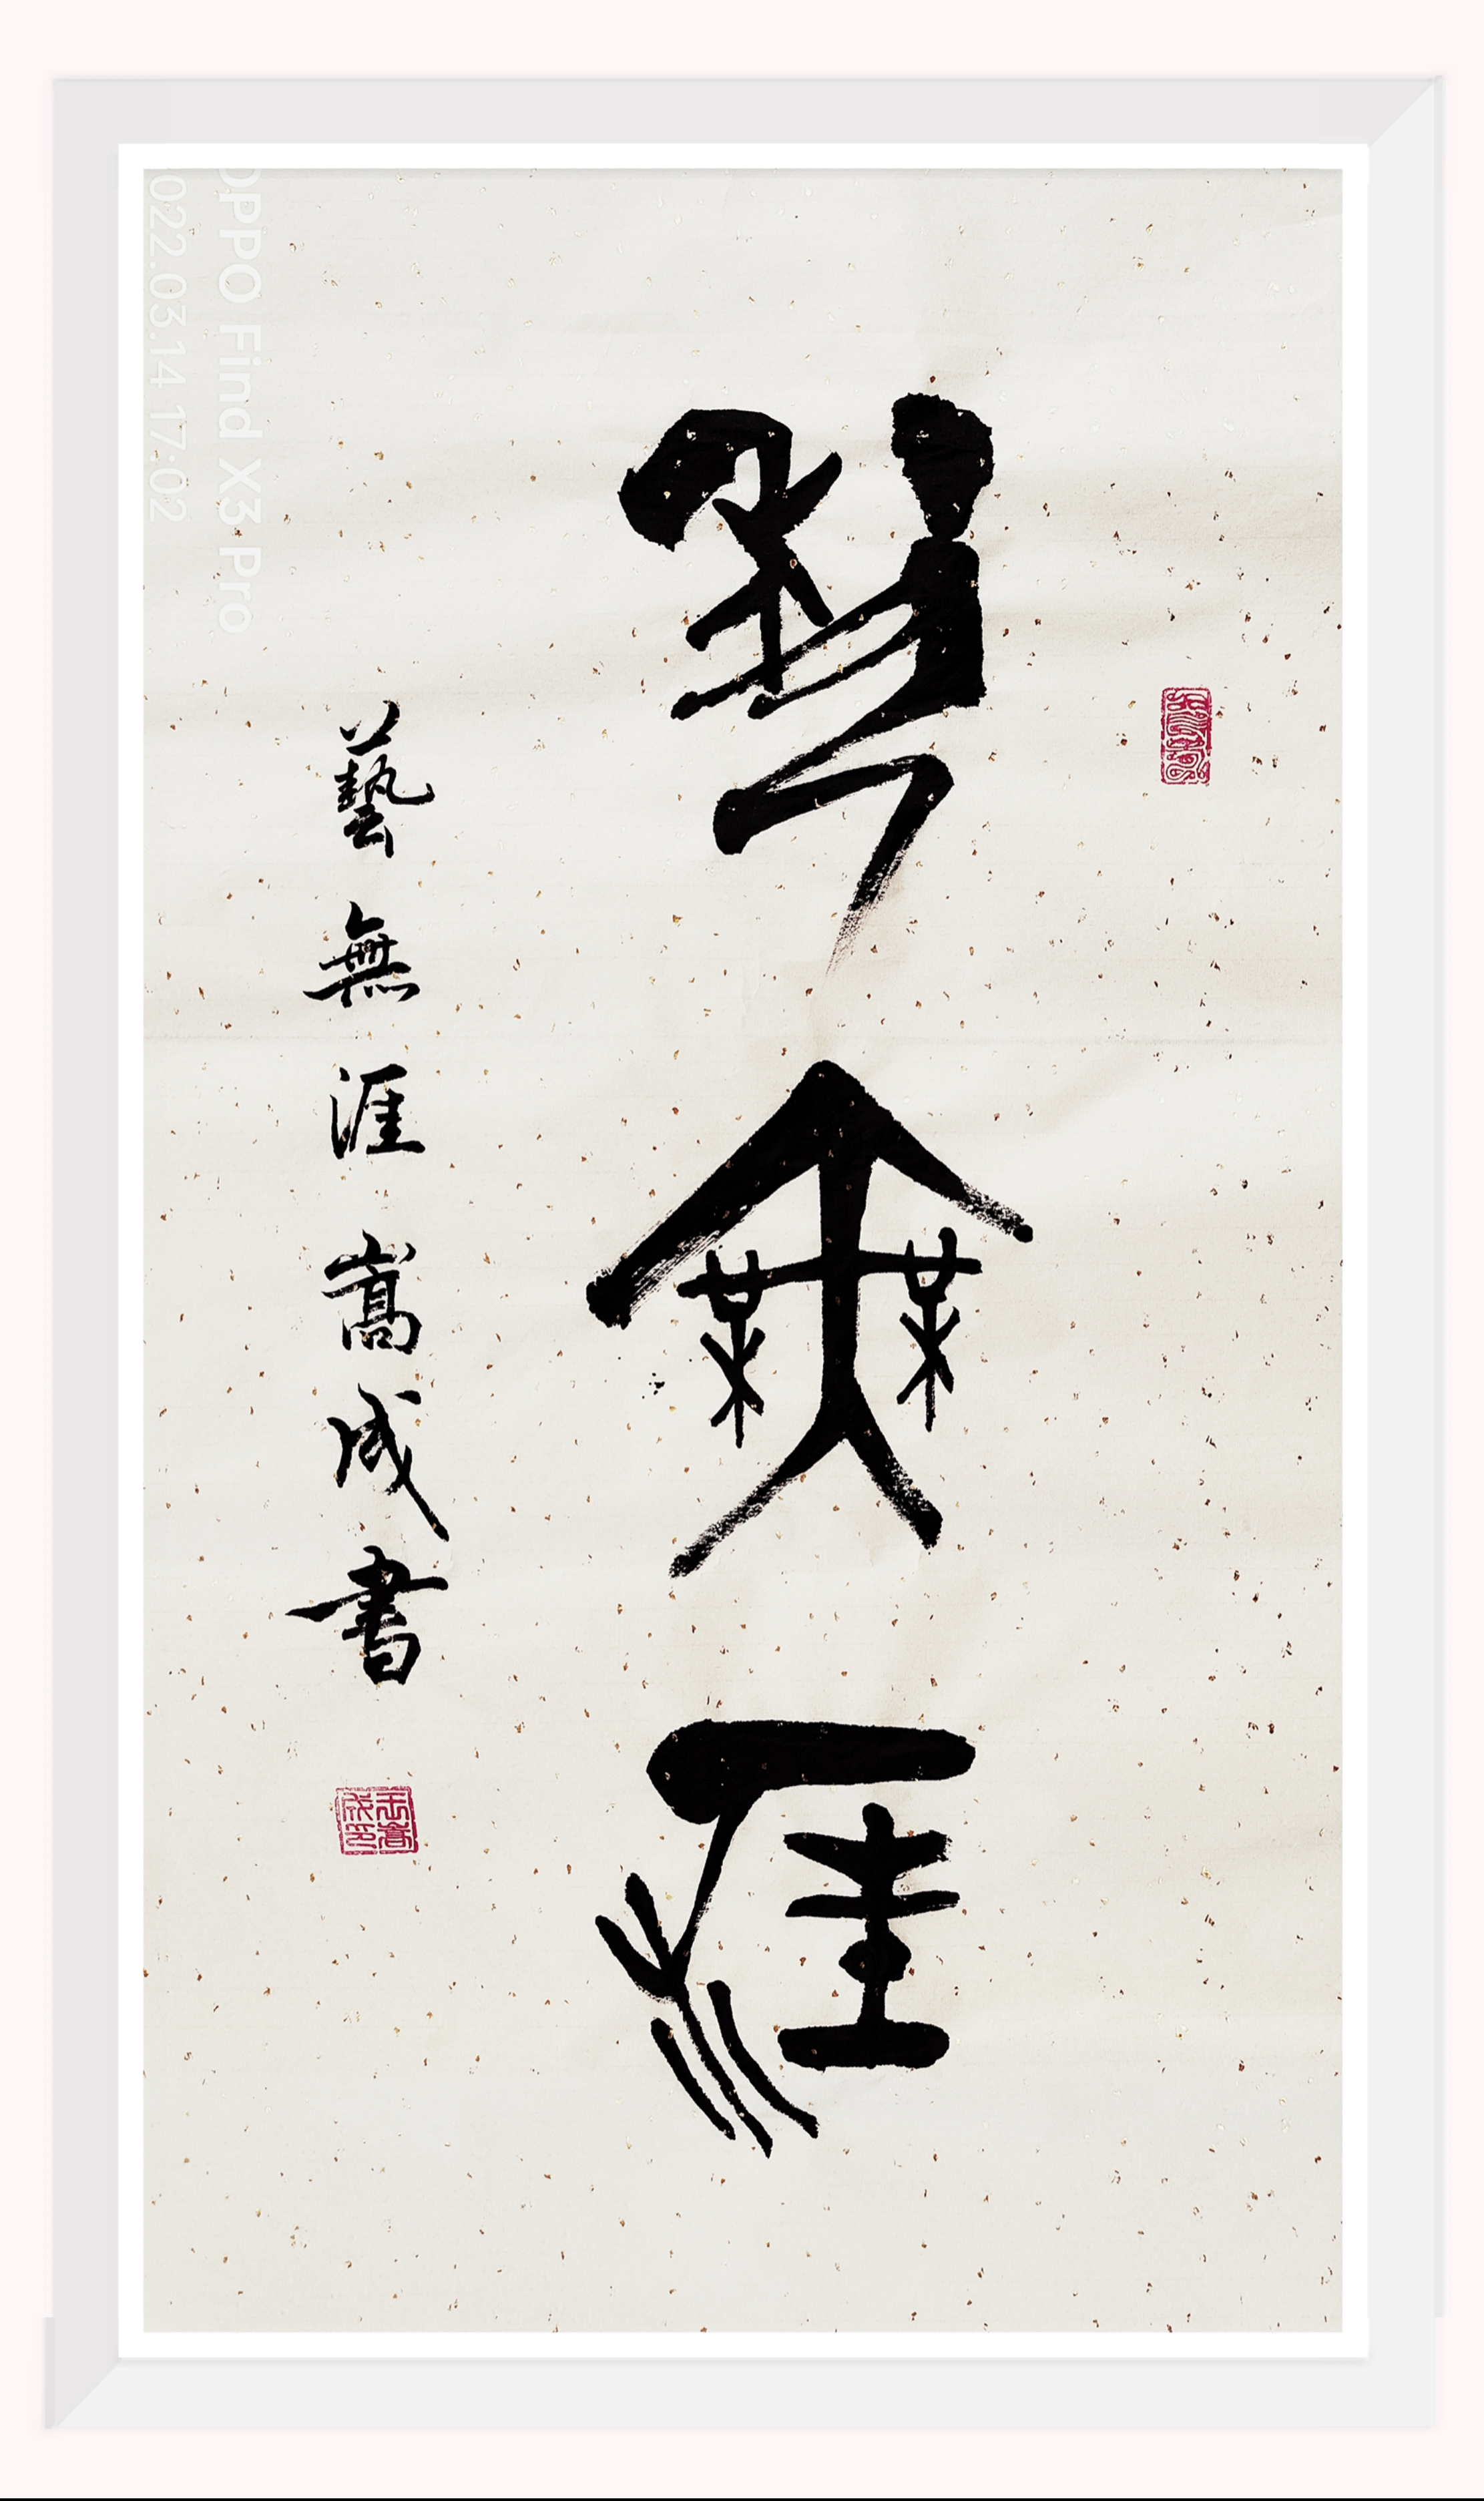 藝無涯
藝無涯嵩成書
OPPO Find X3 Pro
022.03.14 17:02